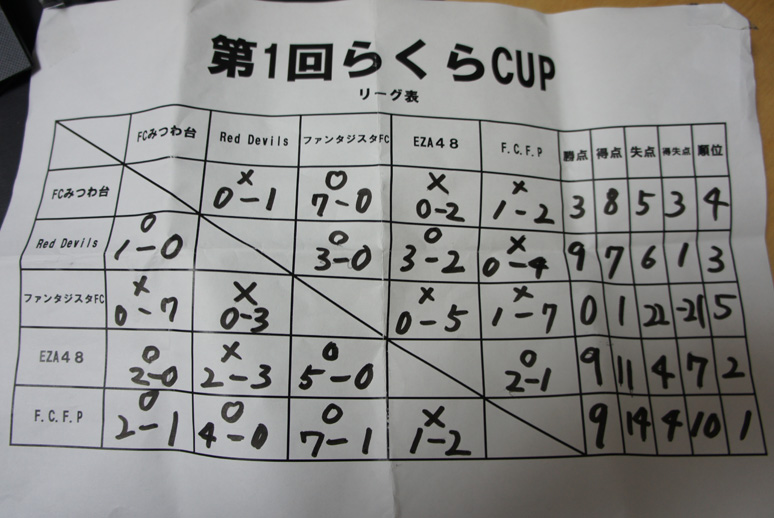 第1回らくらCUP
リーグ表
FCみつわ台 Red Devils ファンタジスタFC EZA48 F.C.F.P 勝点 得点 失点 得失点 順位
FCみつわ台 × 0-1 ○ 7-0 × 0-2 × 1-2 3 8 5 3 4
Red Devils ○ 1-0 ○ 3-0 ○ 3-2 × 0-4 9 7 6 1 3
ファンタジスタFC × 0-7 × 0-3 × 0-5 × 1-7 0 1 22 -21 5
EZA48 ○ 2-0 × 2-3 ○ 5-0 ○ 2-1 9 11 4 7 2
F.C.F.P ○ 2-1 ○ 4-0 ○ 7-1 × 1-2 9 14 4 10 1